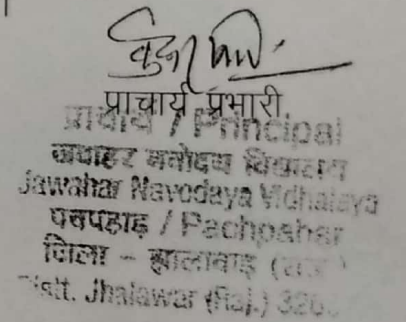 प्राचार्य प्रभारी
प्राचार्य / Principal
जवाहर नवोदय विद्यालय
Jawahar Navodaya Vidhalaya
पचपहाड़ / Pachpahar
जिला - झालावाड़ (राज
Distt. Jhalawar (Raj.) 326